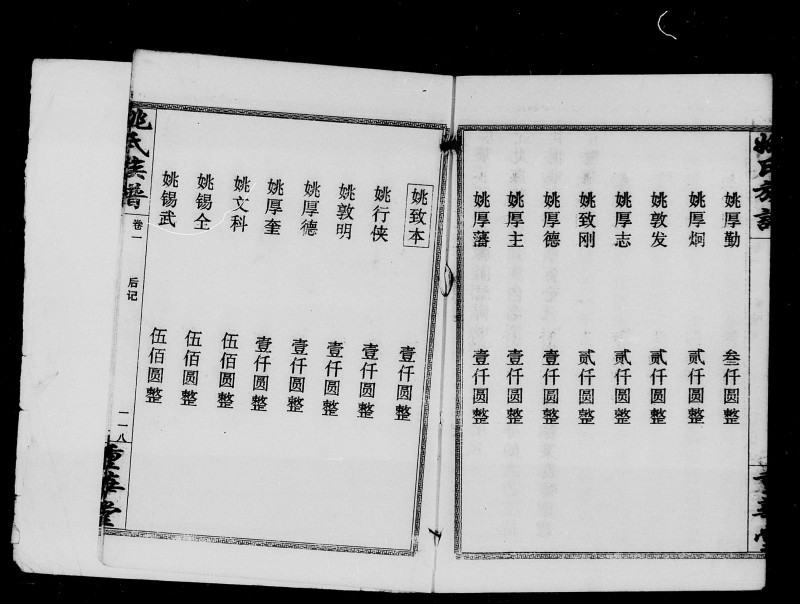 姚厚勤 叁仟圆整
姚厚炯 贰仟圆整
姚敦发 贰仟圆整
姚厚志 贰仟圆整
姚致刚 贰仟圆整
姚厚德 壹仟圆整
姚厚主 壹仟圆整
姚厚藩 壹仟圆整
姚致本 壹仟圆整
姚行侠 壹仟圆整
姚敦明 壹仟圆整
姚厚德 壹仟圆整
姚厚奎 壹仟圆整
姚文科 伍佰圆整
姚锡全 伍佰圆整
姚锡武 伍佰圆整
姚氏族譜 卷一 后记 一一八 重華堂